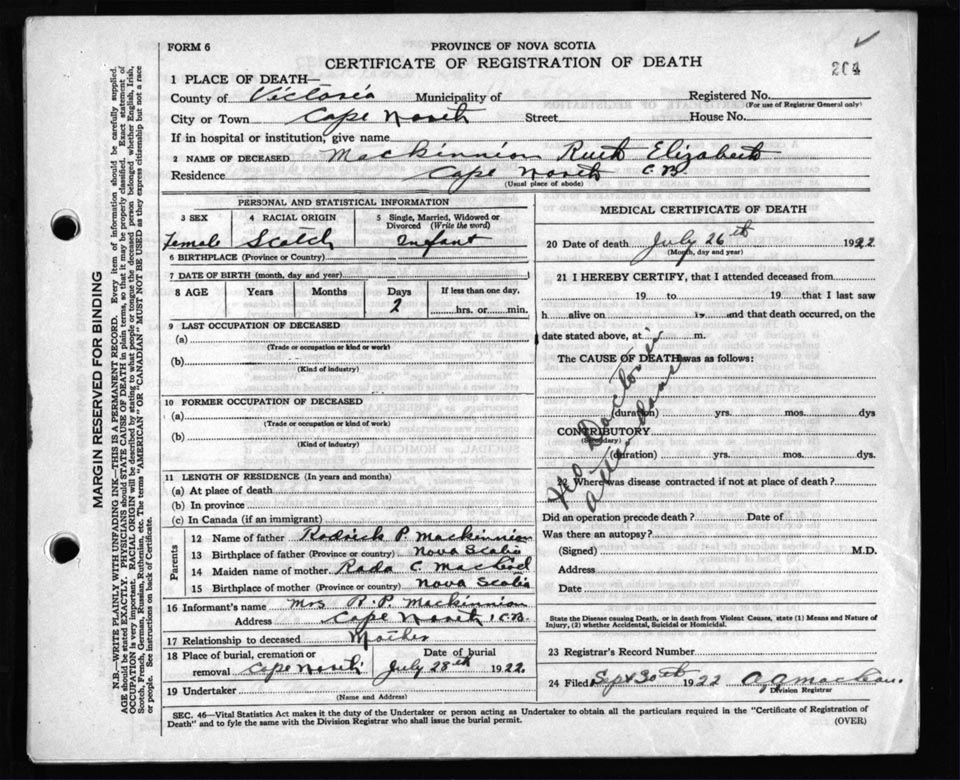 FORM 6
PROVINCE OF NOVA SCOTIA
CERTIFICATE OF REGISTRATION OF DEATH
204
1 PLACE OF DEATH—
County of Victoria Municipality of Registered No.
(For use of Registrar General only)
City or Town Cape North Street House No.
If in hospital or institution, give name
2 NAME OF DECEASED Mackinnion Ruth Elizabeth
Residence Cape North C.B.
(Usual place of abode)
PERSONAL AND STATISTICAL INFORMATION
3 SEX 4 RACIAL ORIGIN 5 Single, Married, Widowed or Divorced (Write the word)
Female Scotch Infant
6 BIRTHPLACE (Province or Country)
7 DATE OF BIRTH (month, day and year)
8 AGE Years Months Days If less than one day.
2 hrs. or min.
9 LAST OCCUPATION OF DECEASED
(a)
(Trade or occupation or kind or work)
(b)
(Kind of industry)
10 FORMER OCCUPATION OF DECEASED
(a)
(Trade or occupation or kind of work)
(b)
(Kind of industry)
11 LENGTH OF RESIDENCE (In years and months)
(a) At place of death
(b) In province
(c) In Canada (if an immigrant)
Parents
12 Name of father Rodrick P. Mackinnion
13 Birthplace of father (Province or country) Nova Scotia
14 Maiden name of mother Rada C MacLeod
15 Birthplace of mother (Province or country) Nova Scotia
16 Informant's name Mrs R. P. Mackinnion
Address Cape North C.B.
17 Relationship to deceased Mother
18 Place of burial, cremation or removal Cape North Date of burial July 28th 1922.
19 Undertaker
(Name and Address)
MEDICAL CERTIFICATE OF DEATH
20 Date of death July 26th 1922
(Month, day and year)
21 I HEREBY CERTIFY, that I attended deceased from
19 to 19 that I last saw
h alive on 19 and that death occurred, on the
date stated above, at m.
The CAUSE OF DEATH was as follows:
No Doctor in attendance
(duration) yrs. mos. dys
CONTRIBUTORY
(Secondary)
(duration) yrs. mos. dys.
22 Where was disease contracted if not at place of death?
Did an operation precede death? Date of
Was there an autopsy?
(Signed) M.D.
Address
Date
State the Disease causing Death, or in death from Violent Causes, state (1) Means and Nature of
Injury, (2) whether Accidental, Suicidal or Homicidal.
23 Registrar's Record Number
24 Filed Sept 30th 1922 A. A. MacLean.
Division Registrar
SEC. 46—Vital Statistics Act makes it the duty of the Undertaker or person acting as Undertaker to obtain all the particulars required in the "Certificate of Registration of
Death" and to fyle the same with the Division Registrar who shall issue the burial permit.
(OVER)
MARGIN RESERVED FOR BINDING
N.B.—WRITE PLAINLY WITH UNFADING INK—THIS IS A PERMANENT RECORD. Every item of information should be carefully supplied.
AGE should be stated EXACTLY. PHYSICIANS should STATE CAUSE OF DEATH in plain terms, so that it may be properly classified. Exact statement of
OCCUPATION is very important. RACIAL ORIGIN will be described by stating to what people or tongue the deceased person belonged whether English, Irish,
Scotch, French, German, Russian, Ruthenian, etc. The terms "AMERICAN" OR "CANADIAN" MUST NOT BE USED as they express citizenship but not a race
or people. See instructions on back of Certificate.